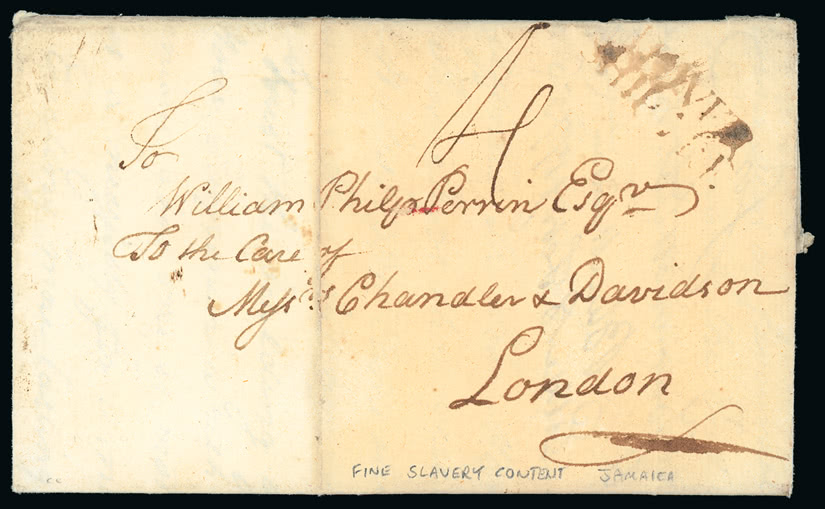 4
To
William Philp Perrin Esqr
To the Care of
Messrs Chandler & Davidson
London
FINE SLAVERY CONTENT JAMAICA